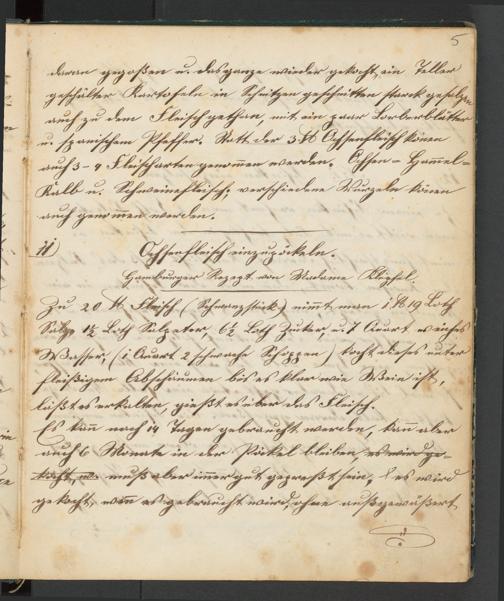 5
daran gegoßen u. das ganze wieder gekocht, ein Teller
geschälter Kartofeln in Schnitzen geschnitten stark gesalzen
auch zu dem Fleisch gethan, mit ein paar Lorberblätter
u. spanischem Pfeffer. Statt der 3 ℔ Ochsenfleisch können
auch 3-4 Fleischarten genommen werden. Ochsen- Hammel-
Kalb u. Schweinefleisch; verschiedene Wurzeln können
auch genommen werden.
11) Ochsenfleisch einzupöckeln.
Hamburger Rezept von Madame
Zu 20 ℔ Fleisch (Schwanzstück) nimmt man 1 ℔ 19 Loth
Salz, 1½ Loth Salpeter, 6½ Loth Zuker, u. 7 Quart weiches
Wasser, (1 Quart 2 schwache Schoppen) kocht dieses unter
fleißigem Abschäumen bis es klar wie Wein ist,
läßt es erkalten, gießt es über das Fleisch.
Es kann nach 14 Tagen gebraucht werden, kann aber
auch 6 Monate in der Pöckel bleiben, es wird ge-
kocht, muß aber immer gut gepreßt sein, es wird
gekocht, wenn es gebraucht wird, ohne außgewäßert